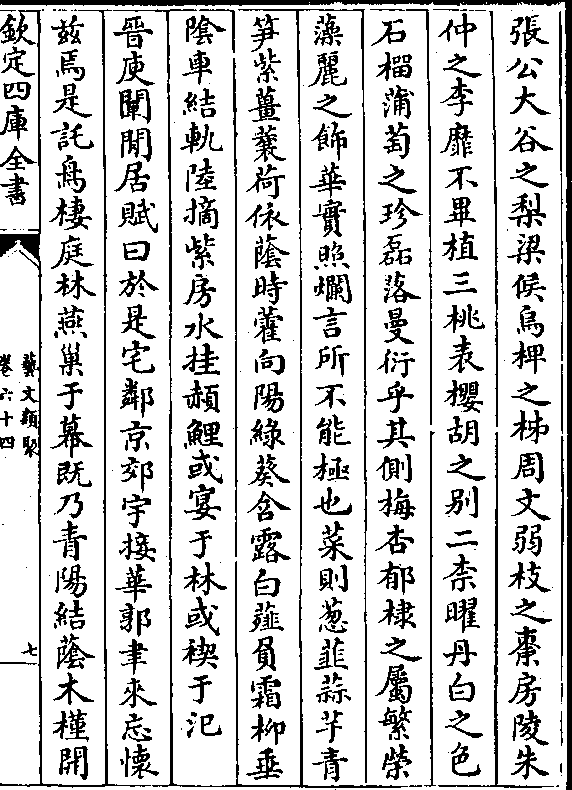 張公大谷之梨梁侯烏椑之柹周文弱枝之棗房陵朱
仲之李靡不畢植三桃表櫻胡之别二柰曜丹白之色
石榴蒲萄之珍磊落曼衍乎其側梅杏郁棣之屬繁榮
藻麗之飾華實照爛言所不能極也菜則葱韮蒜芋青
笋紫薑蘘荷依蔭時藿向陽綠葵含露白薤負霜柳垂
陰車結軌陸摘紫房水挂赬鯉或宴于林或禊于汜
晉庾闡閒居賦曰於是宅鄰京郊宇接華郭聿來忘懷
兹焉是託鳥棲庭林燕巢于幕既乃青陽結蔭木槿開
欽定四庫全書
藝文類聚
卷六十四
七